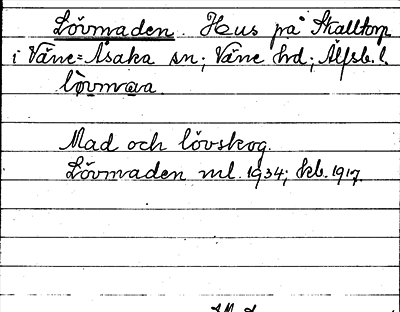 Lövmaden. Hus på Skalltorp
i Väne-Åsaka sn; Väne hd; Älfsb. l.
lövmaa
Mad och lövskog.
Lövmaden ml. 1934; kb. 1917.